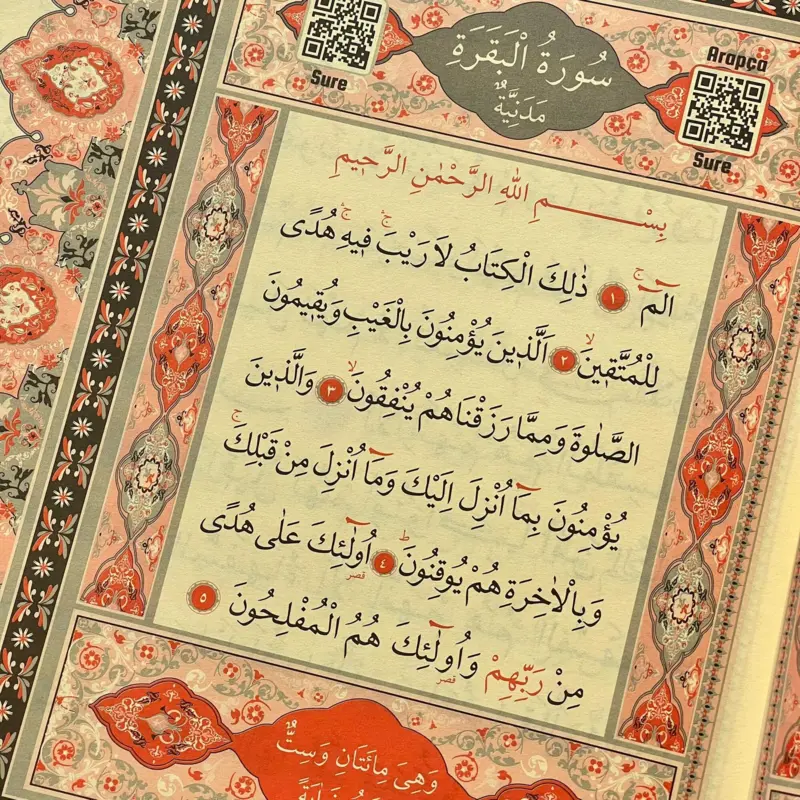 Sure
سُورَةُ الْبَقَرَةِ
مَدَنِيَّةٌ
Arapça
Sure
بِسْمِ اللّٰهِ الرَّحْمٰنِ الرَّحِيمِ
الٓمٓ ۚ ﴿١﴾ ذٰلِكَ الْكِتَابُ لَا رَيْبَ ۚ فٖيهِ ۚ هُدًى
لِلْمُتَّقٖينَ ۙ ﴿٢﴾ اَلَّذٖينَ يُؤْمِنُونَ بِالْغَيْبِ وَيُقٖيمُونَ
الصَّلٰوةَ وَمِمَّا رَزَقْنَاهُمْ يُنْفِقُونَ ۙ ﴿٣﴾ وَالَّذٖينَ
يُؤْمِنُونَ بِمَٓا اُنْزِلَ اِلَيْكَ وَمَٓا اُنْزِلَ مِنْ قَبْلِكَ ۚ
وَبِالْاٰخِرَةِ هُمْ يُوقِنُونَ ؕ ﴿٤﴾ اُولٰٓئِكَ قصر عَلٰى هُدًى
مِنْ رَبِّهِمْ وَاُولٰٓئِكَ قصر هُمُ الْمُفْلِحُونَ ﴿٥﴾
وَهِىَ مِائَتَانِ وَسِتٌّ